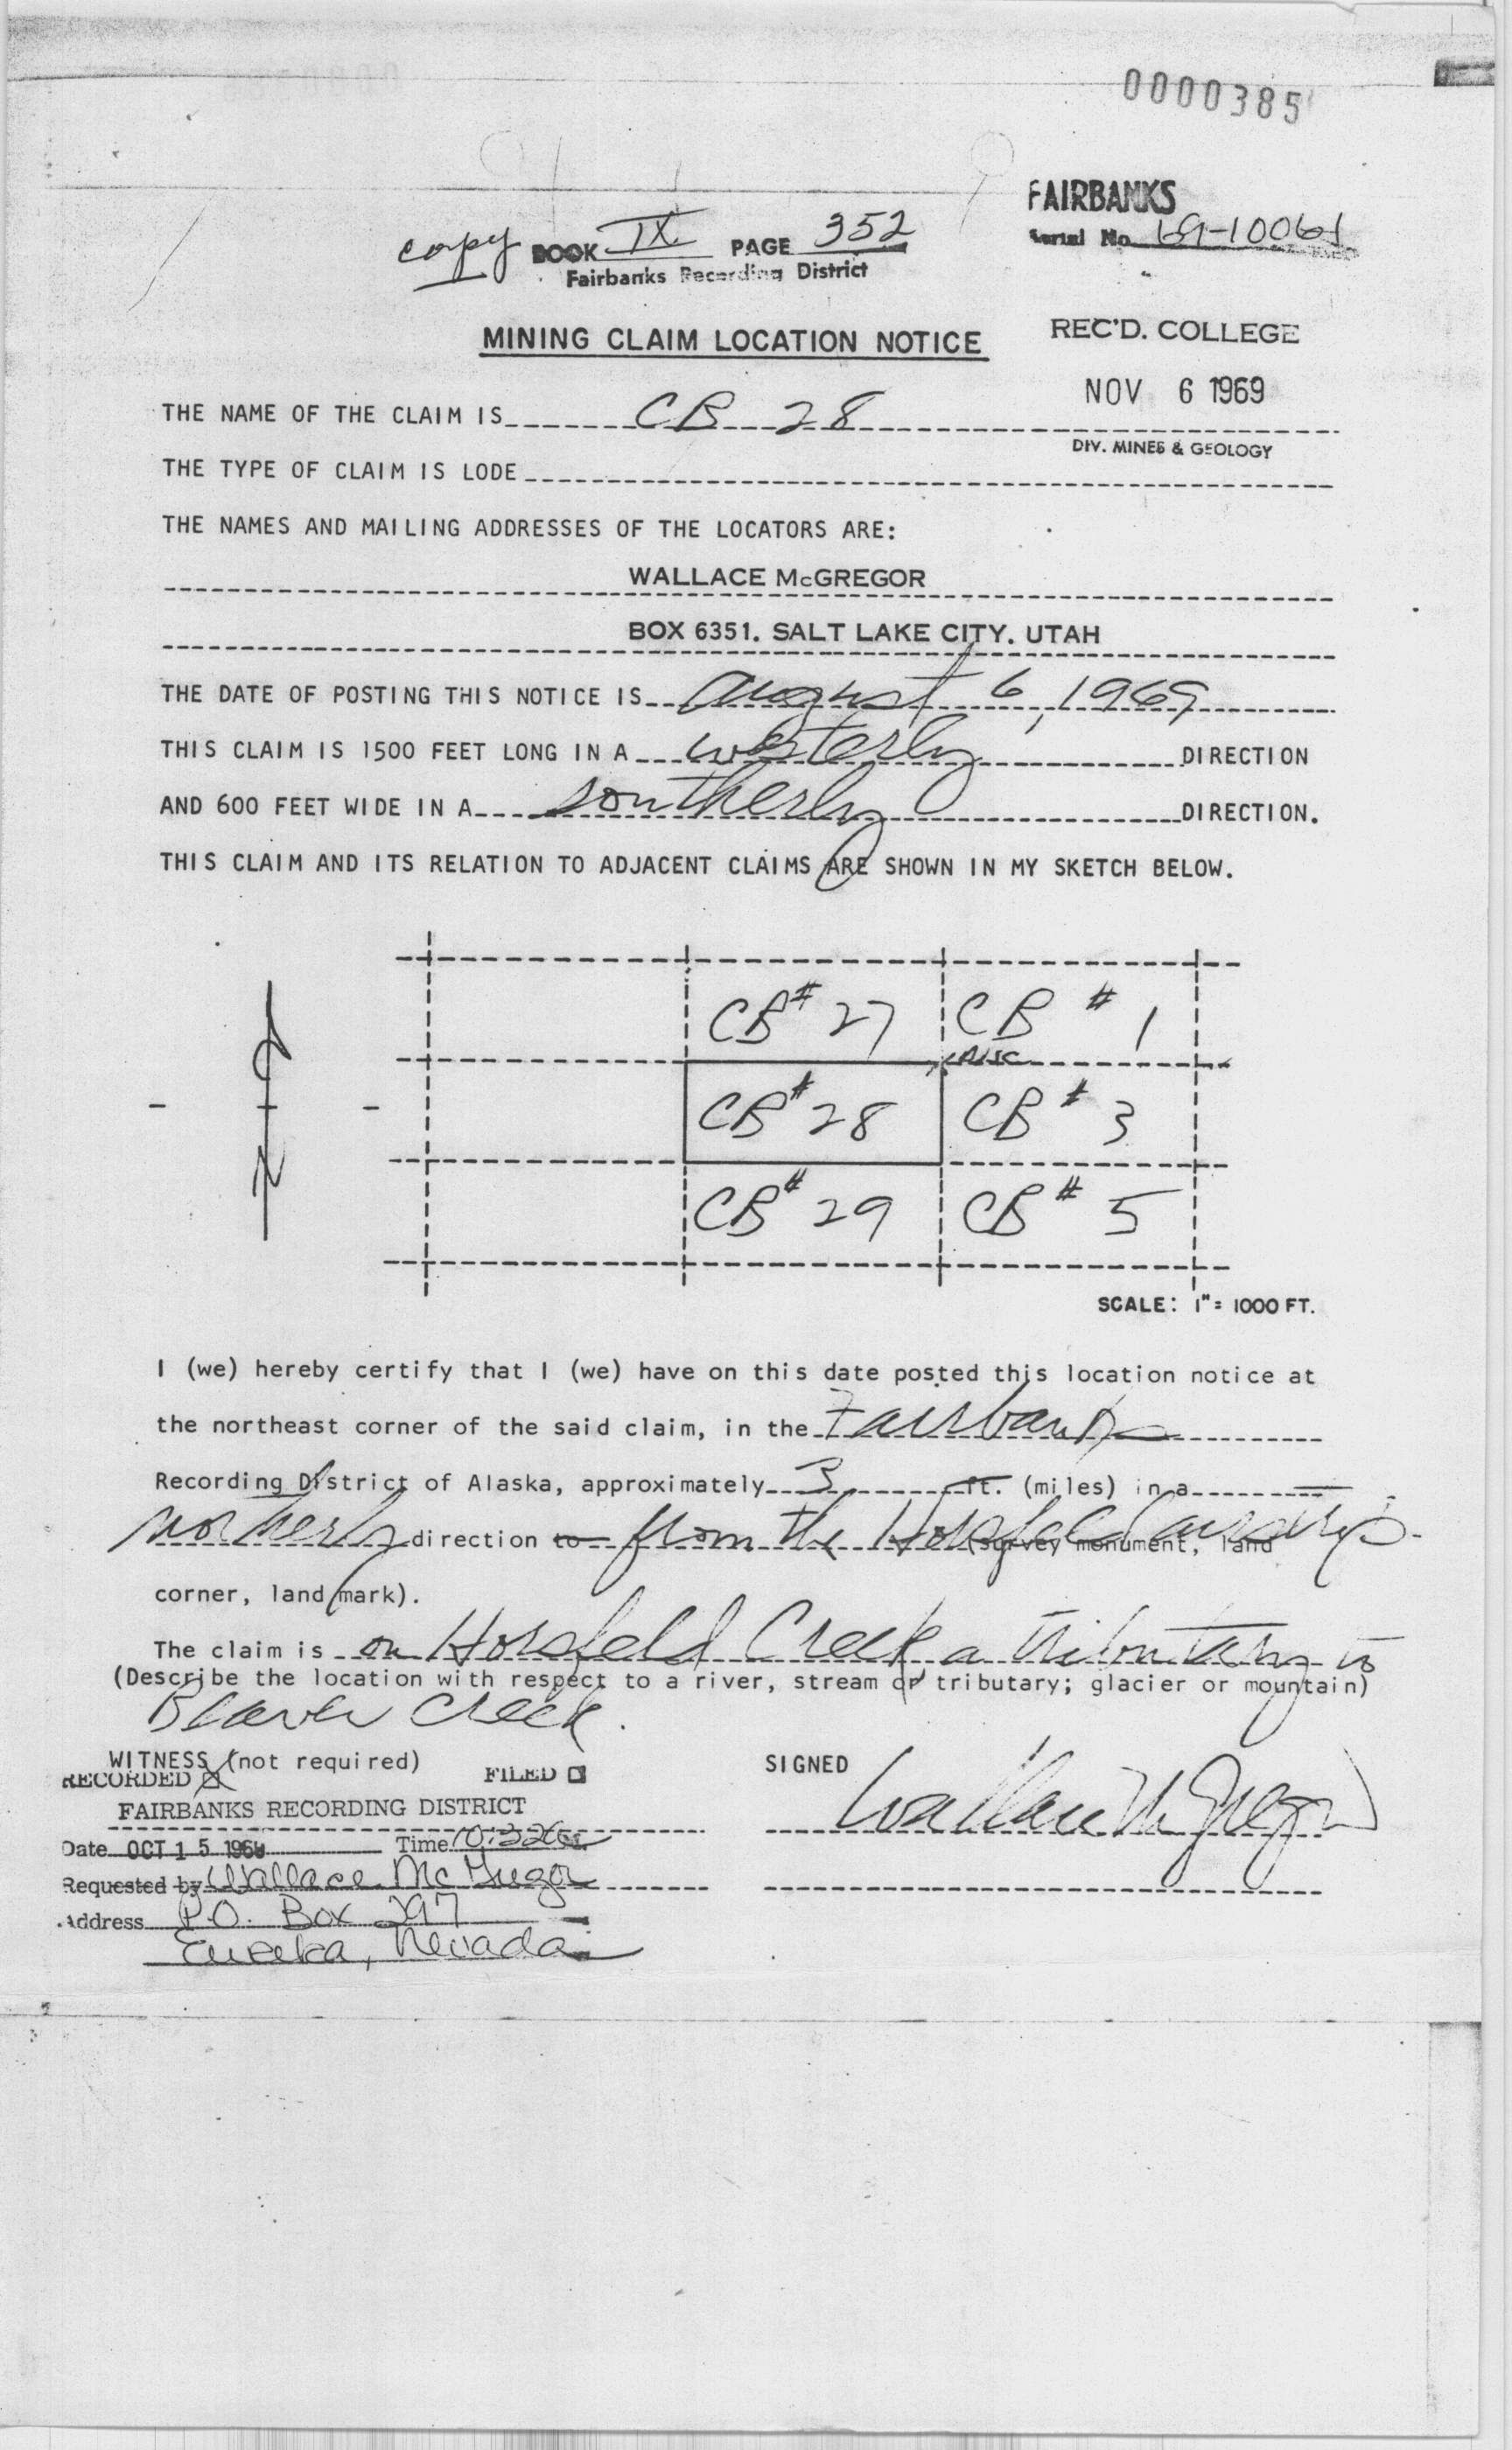 0000385
FAIRBANKS
Serial No. 69-10061
copy BOOK IX PAGE 352
Fairbanks Recording District
MINING CLAIM LOCATION NOTICE
REC'D. COLLEGE
NOV 6 1969
DIV. MINES & GEOLOGY
THE NAME OF THE CLAIM IS CB 28
THE TYPE OF CLAIM IS LODE
THE NAMES AND MAILING ADDRESSES OF THE LOCATORS ARE:
WALLACE McGREGOR
BOX 6351. SALT LAKE CITY. UTAH
THE DATE OF POSTING THIS NOTICE IS August 6, 1969
THIS CLAIM IS 1500 FEET LONG IN A westerly DIRECTION
AND 600 FEET WIDE IN A southerly DIRECTION.
THIS CLAIM AND ITS RELATION TO ADJACENT CLAIMS ARE SHOWN IN MY SKETCH BELOW.
CB# 27 CB # 1
DISC
CB# 28 CB # 3
CB# 29 CB # 5
SCALE: 1"= 1000 FT.
I (we) hereby certify that I (we) have on this date posted this location notice at
the northeast corner of the said claim, in the Fairbanks
Recording District of Alaska, approximately 3 ft. (miles) in a
northerly direction to from the Horsfeld airstrip
(survey monument, land
corner, land mark).
The claim is on Horsfeld Creek a tributary to
(Describe the location with respect to a river, stream or tributary; glacier or mountain)
Beaver Creek.
WITNESS (not required)
SIGNED Wallace McGregor
RECORDED FILED
FAIRBANKS RECORDING DISTRICT
Date OCT 15 1969 Time 10:32
Requested by Wallace McGregor
Address P.O. Box 297
Eureka, Nevada